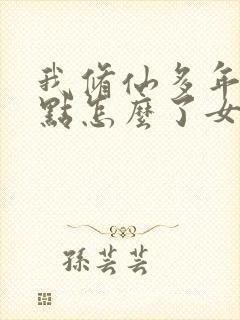 我脩仙多年
點怎麼了女
孫芸芸